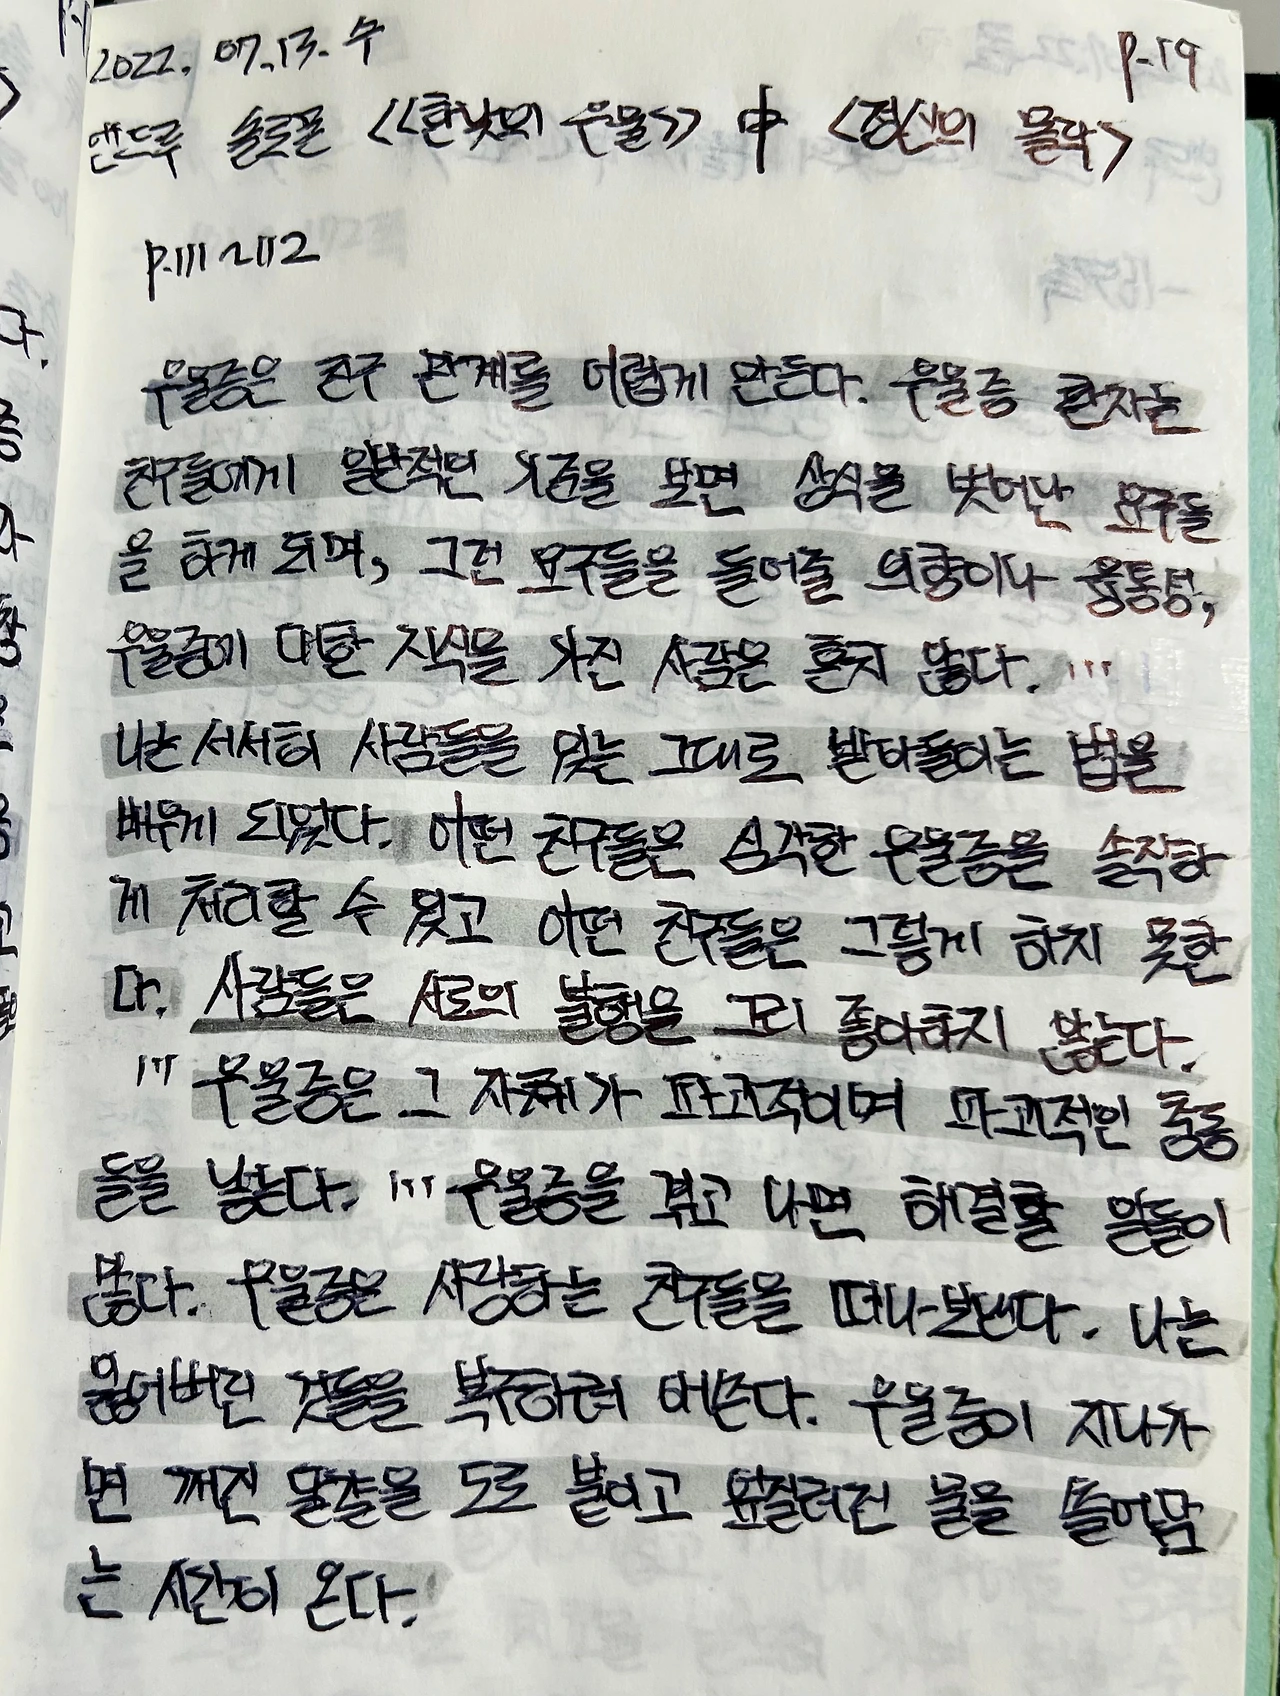 2022. 07.13. 수
P.19
앤드루 솔로몬 <<한낮의 우울>> 中 <정신의 몰락>
p.111~112
우울증은 친구 관계를 어렵게 만든다. 우울증 환자는
친구들에게 일반적인 기준을 보면 상식을 벗어난 요구들
을 하게 되며, 그런 요구들을 들어줄 의향이나 융통성,
우울증에 대한 지식을 가진 사람은 흔치 않다. …
나는 서서히 사람들을 있는 그대로 받아들이는 법을
배우게 되었다. 어떤 친구들은 심각한 우울증을 솔직하
게 처리할 수 있고 어떤 친구들은 그렇게 하지 못한
다. 사람들은 서로의 불행을 그리 좋아하지 않는다.
… 우울증은 그 자체가 파괴적이며 파괴적인 충동
들을 낳는다. … 우울증을 겪고 나면 해결할 일들이
많다. 우울증은 사랑하는 친구들을 떠나보낸다. 나는
잃어버린 것들을 복구하려 애쓴다. 우울증이 지나가
면 깨진 달걀을 도로 붙이고 엎질러진 물을 쓸어담
는 시간이 온다.